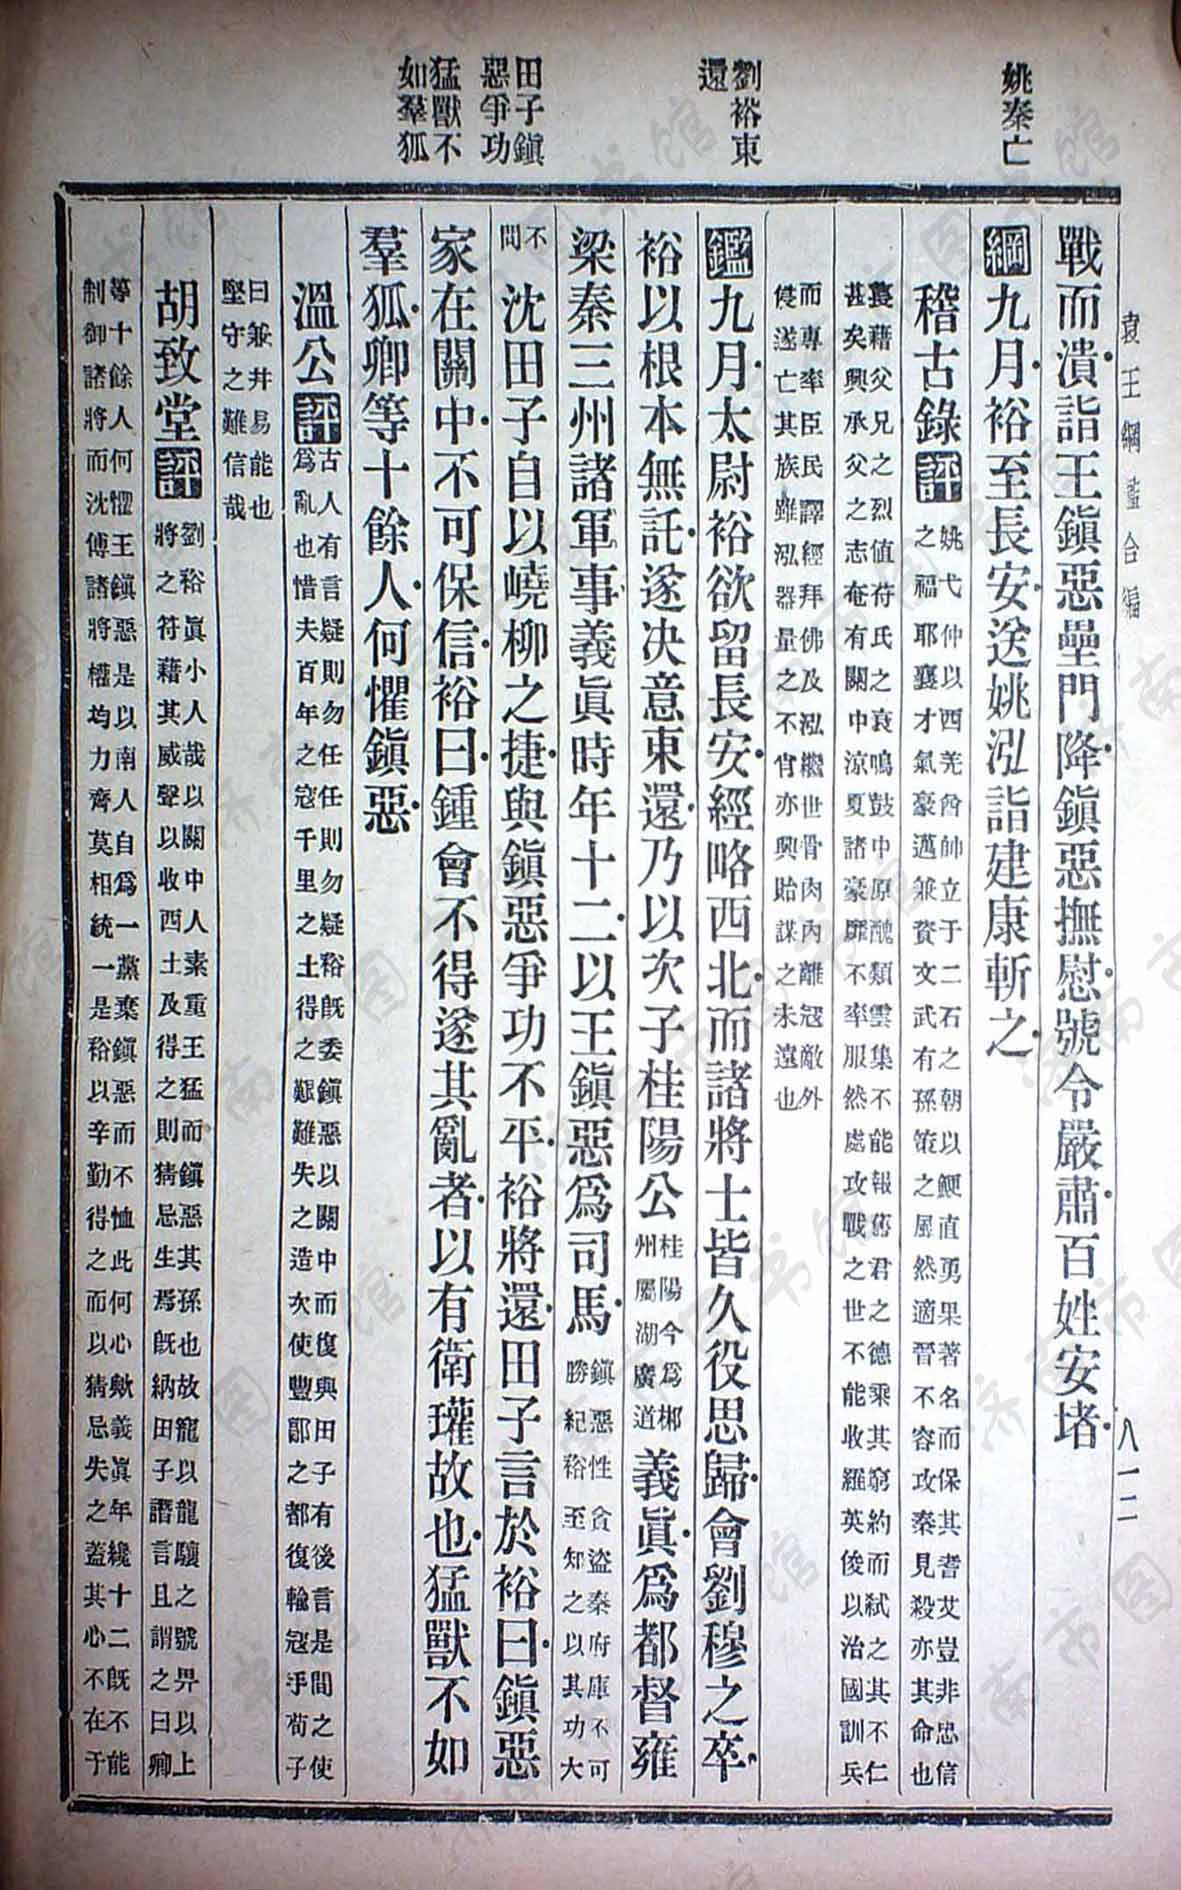 姚秦亡
劉裕東
還
田子鎮
惡爭功
猛獸不
如羣狐
袁王綱鑑合編
八一二
戰而潰詣王鎮惡壘門降鎮惡撫慰號令嚴肅百姓安堵
綱九月裕至長安送姚泓詣建康斬之
稽古錄評姚弋仲以西羌酋帥立于二石之朝以鯁直勇果著名而保其耆艾豈非忠信
之福耶襄才氣豪邁兼資文武有孫策之風然適晉不容攻秦見殺亦其命也
萇藉父兄之烈值苻氏之衰鳴鼓中原醜類雲集不能報舊君之德乘其窮約而弒之其不仁
甚矣興承父之志奄有關中涼夏諸豪靡不率服然處攻戰之世不能收羅英俊以治國訓兵
而專率臣民譯經拜佛及泓繼世骨肉內離寇敵外
侵遂亡其族雖泓器量之不肖亦興貽謀之未遠也
鑑九月太尉裕欲留長安經略西北而諸將士皆久役思歸會劉穆之卒
裕以根本無託遂决意東還乃以次子桂陽公桂陽今爲郴州屬湖廣道義眞爲都督雍
梁秦三州諸軍事義眞時年十二以王鎮惡爲司馬鎭惡性貪盜秦府庫不可勝紀裕至知之以其功大
不問沈田子自以嶢柳之捷與鎮惡爭功不平裕將還田子言於裕曰鎮惡
家在關中不可保信裕曰鍾會不得遂其亂者以有衛瓘故也猛獸不如
羣狐卿等十餘人何懼鎮惡
溫公評古人有言疑則勿任任則勿疑裕既委鎮惡以關中而復與田子有後言是間之使
爲亂也惜夫百年之寇千里之土得之艱難失之造次使豐鄗之都復輸寇手荀子
曰兼井易能也
堅守之難信哉
胡致堂評劉裕眞小人哉以關中人素重王猛而鎮惡其孫也故寵以龍驤之號畀以上
將之符藉其威聲以收西土及得之則猜忌生焉既納田子譖言且謂之曰卿
等十餘人何懼王鎮惡是以南人自爲一黨棄鎮惡而不恤此何心歟義眞年纔十二既不能
制御諸將而沈傅諸將權均力齊莫相統一是裕以辛勤得之而以猜忌失之蓋其心不在于